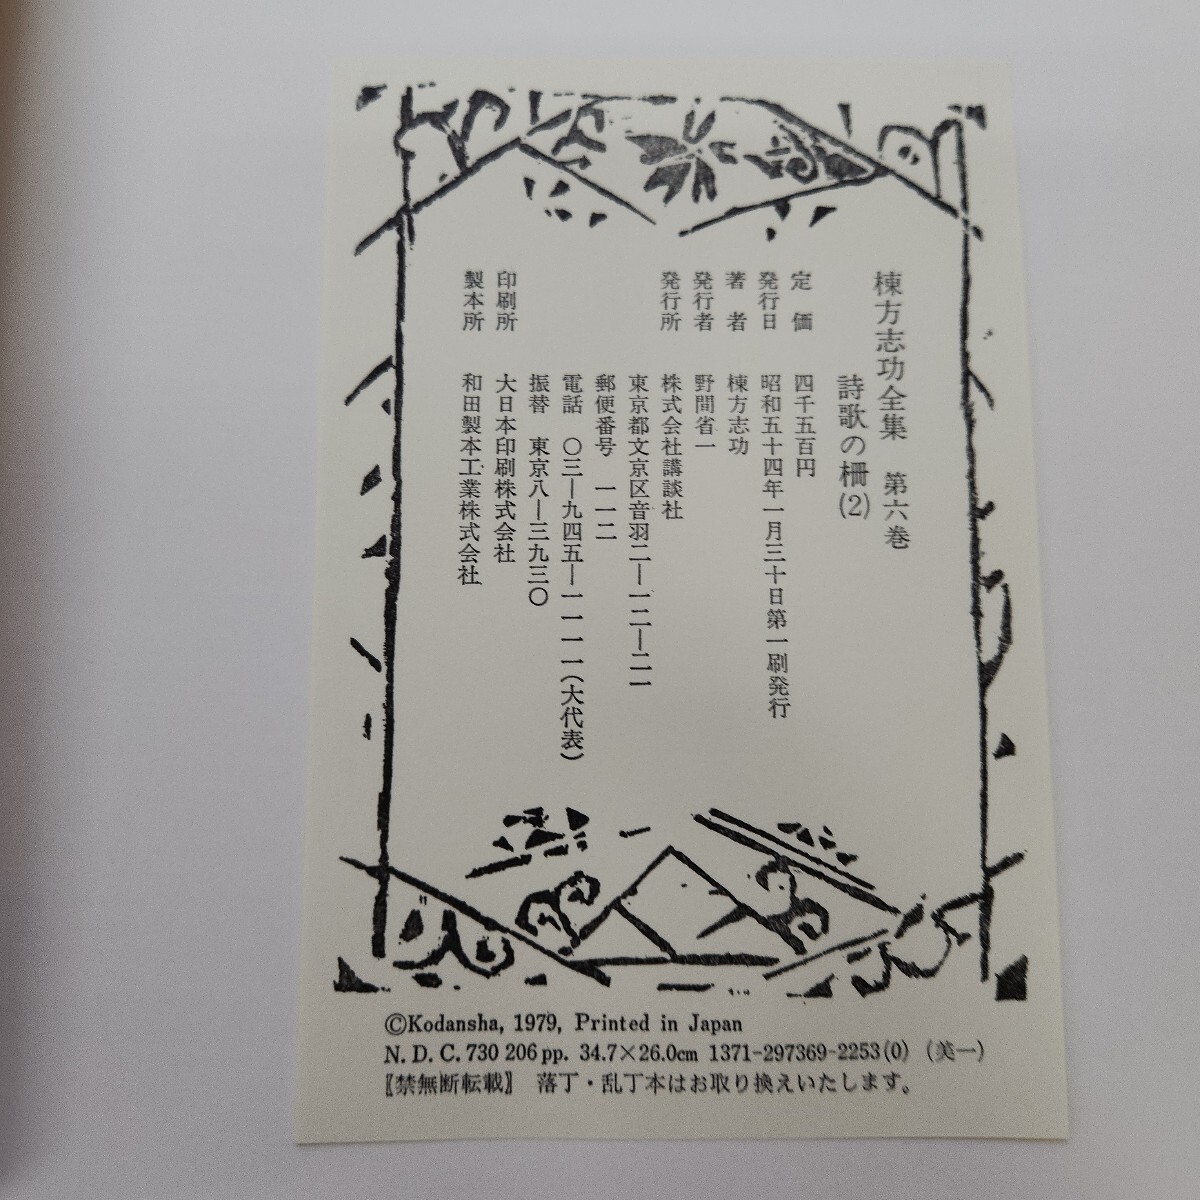 棟方志功全集　第六巻
詩歌の柵(2)
定価　四千五百円
発行日　昭和五十四年一月三十日第一刷発行
著者　棟方志功
発行者　野間省一
発行所　株式会社講談社
東京都文京区音羽二―一二―二一
郵便番号　一一二
電話　〇三―九四五―一一一一(大代表)
振替　東京八―三九三〇
印刷所　大日本印刷株式会社
製本所　和田製本工業株式会社
©Kodansha, 1979, Printed in Japan
N. D. C. 730 206 pp. 34.7×26.0cm 1371-297369-2253(0) (美一)
〖禁無断転載〗 落丁・乱丁本はお取り換えいたします。